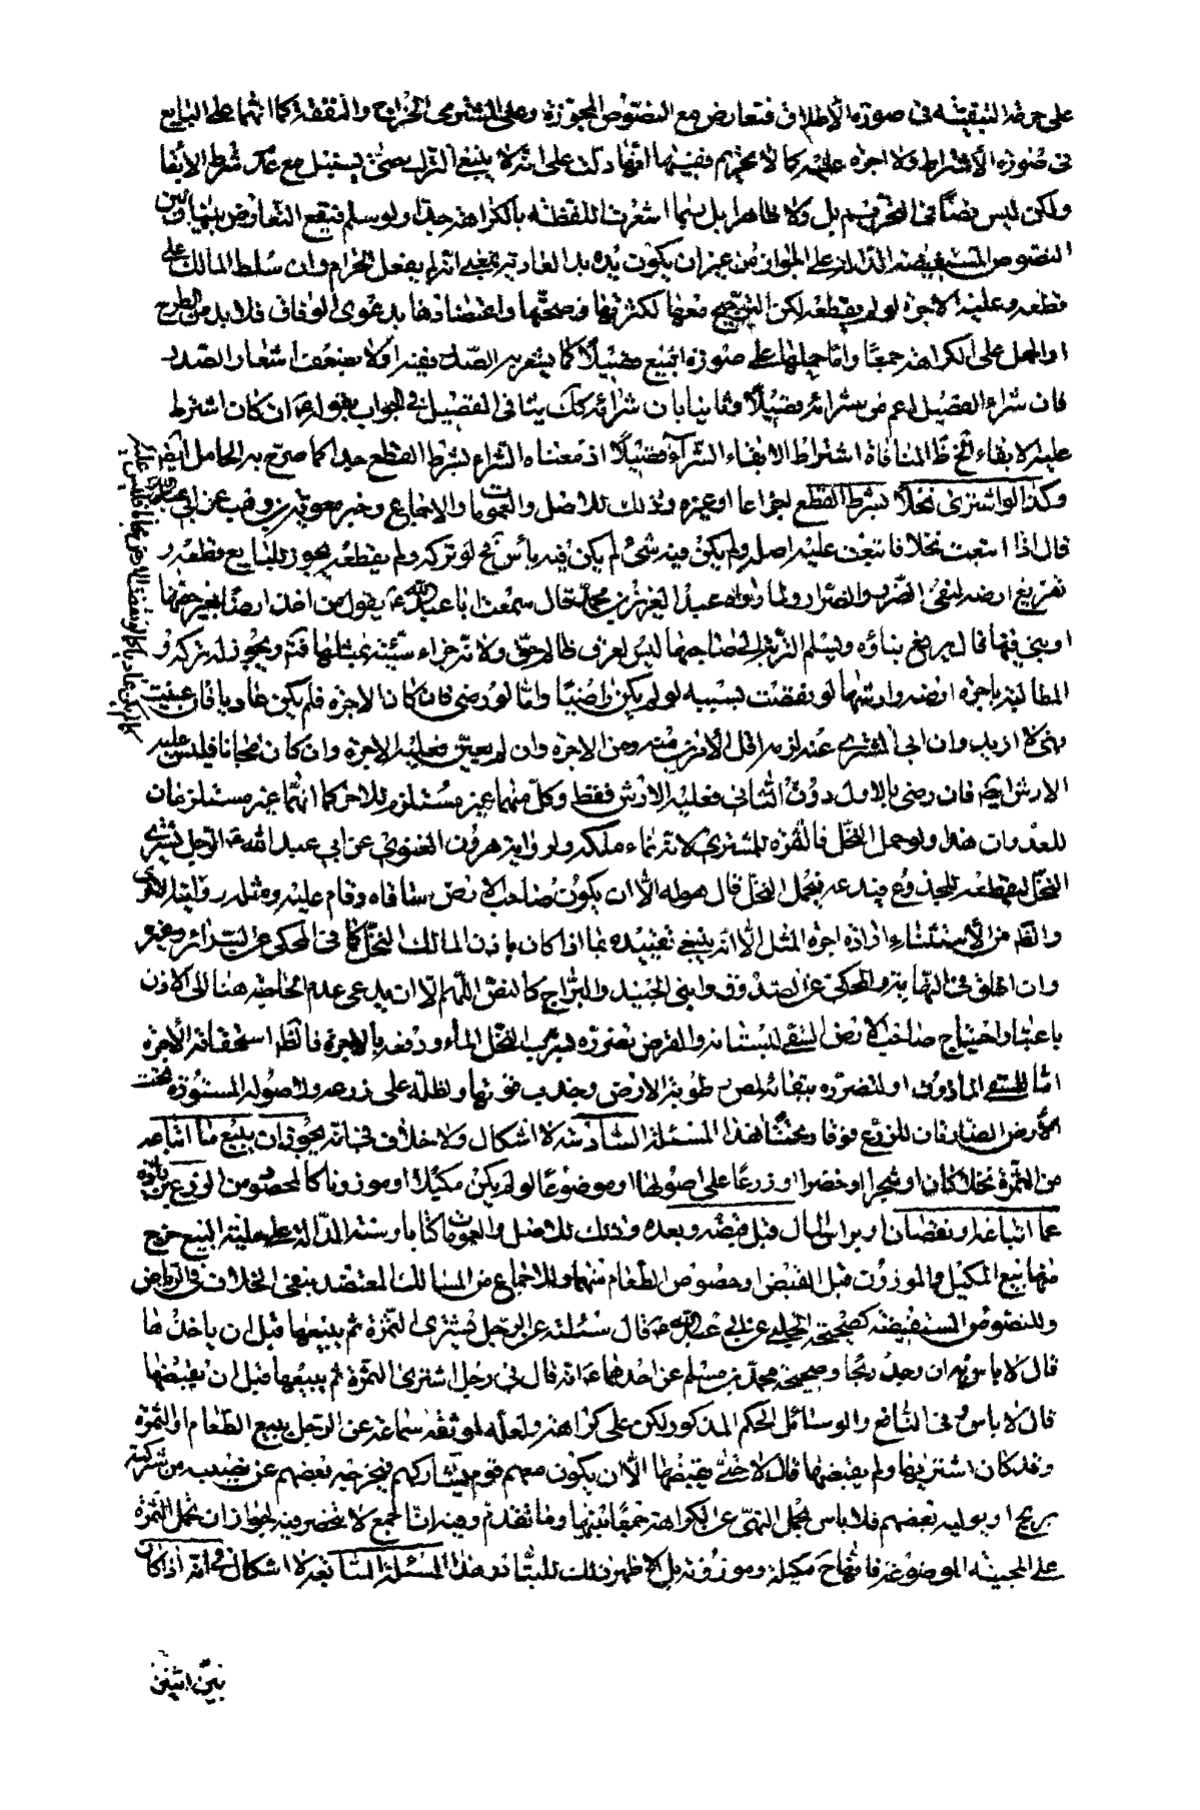 على حرمة التبقية في صورة الاطلاق فتعارض مع النصوص المجوزة وعلى المشتري الخراج والنفقة كما انهما على البايع
في صورة الاشتراط ولا اجرة عليه كما لا تحريم ففيهما انها دلت على انه لا ينبغي التراب حتى يسنبل مع عدم شرط الابقا
ولكن ليس نصا في التحريم بل ولا ظاهرا بل ربما اشعرت اللفظة بالكراهة جدا ولو سلم فيقع التعارض بينهما وبين
النصوص المستفيضة الدالة على الجواز من غير ان يكون يده يد العادية بمعنى انه لم يفعل الحرام وان سلط المالك على
قطعه وعليه الاجرة لو لم يقطعه لكن الترجيح معها لكثرتها وصحتها واعتضادها بدعوى الوفاق فلا بد من الطرح
او الحمل على الكراهة جمعا واما حملها على صورة البيع قصيلا كما يشعر به الصدر ففيه اولا بضعف اشعار الصدر
فان شراء القصيل اعم من شرائه قصيلا وثانيا بان شرائه كذلك ينافي التفصيل في الجواب بقوله ان كان اشترط
عليه الابقاء لمنافاة اشتراط الابقاء الشراء قصيلا اذ معناه الشراء بشرط القطع جدا كما صرح به الحامل ايضا
وكذا لو اشترى نخلا بشرط القطع اجذاعا او غيره وذلك للاصل والعمومات والاجماع وخبر معوية بن وهب عن ابي عبد الله
قال اذا ابتعت نخلا فابتعت عليه اصله ولم يكن فيه شيء لم يكن فيه باس لو تركه ولم يقطعه يجوز للبايع قطعه و
تفريغ ارضه لنفي الضرر والضرار ولما رواه عبد العزيز بن محمد قال سمعت ابا عبد الله ع يقول من اخذ ارضا بغير حقها
او بنى فيها قال يرفع بناؤه ويسلم التربة الى صاحبها ليس لعرق ظالم حق ولانه جزاء سيئة بمثلها فتم ويجوز له تركه و
المطالبة باجرة ارضه وارشها لو نقصت بسببه لو لم يكن راضيا واما لو رضي فان كانا الاجرة فلم يكن عاديا فان عينت
فهي لا ازيد وان ابى المشتري عند لزمه اقل الامرين منه ومن الاجرة وان لم يعين فعليه الاجرة وان كان مجانا فليس عليه
الارش ايضا فان رضي بالاول دون الثاني فعليه الارش فقط وكل منهما غير مستلزم للاخر كما انهما غير مستلزمان
للعدوان هذا ولو حمل النخل فالثمرة للمشتري لانه نماء ملكه ولرواية هرون الغنوي عن ابي عبد الله ع الرجل يشتري
النخل ليقطعه للجذوع فيدعه فيحمل النخل قال هو له الا ان يكون صاحب الارض ساقاه وقام عليه ومثله رواية اخرى
والظاهر من الاستثناء ارادة اجرة المثل الا انه ينبغي تقييده بما اذا كان باذن المالك النخل كما في المحكى عن السرائر وغيره
وان اطلق في النهاية والمحكي عن الصدوق وابني الجنيد والبراج كالنص اللهم الا ان يدعى عدم الحاجة هنا الى الاذن
باعتبار احتياج صاحب الارض لسقي لبستانه والفرض تضرره بشرب النخل الماء ودفعه بالاجرة فالظاهر استحقاقه الاجرة
اما للسقي الماذون او لتضرره ببقائه لمص رطوبة الارض وجذب قوتها ولظله على زرعه ولاصوله المستورة تحت
الارض الضارة فان للزرع فوقا وتحتا هذا المسئلة السادسة لا اشكال ولا خلاف في انه يجوز ان يبيع ما ابتاعه
من الثمرة نخلا كان او شجرا او خضرا او زرعا على اصولها او موضوعا لو لم يكن مكيلا او موزونا كالمحصود من الزرع عن زيادة
عما ابتاعه او نقصان او براس المال قبل قبضه وبعده وذلك للاصل والعمومات كتابا وسنة الدالة على حلية البيع خرج
منها بيع المكيل والموزون قبل القبض او خصوص الطعام منهما وللاجماع من المسالك المعتضد بنفي الخلاف في الرياض
وللنصوص المستفيضة كصحيحة الحلبي عن ابي عبد الله ع قال سئلته عن الرجل يشتري الثمرة ثم يبيعها قبل ان ياخذها
قال لا باس به ان وجد ربحا وصحيحة محمد بن مسلم عن احدهما ع انه قال في رجل اشترى الثمرة ثم يبيعها قبل ان يقبضها
قال لا باس في النافع والوسائل الحكم المذكور لكن على كراهة ولعله لموثقة سماعة عن الرجل يبيع الطعام او الثمرة
وقد كان اشتريها ولم يقبضها قال لا حتى يقبضها الا ان يكون معهم قوم يشاركهم فيخرجه بعضهم عن نصيبه من شركته
بربح او يوليه بعضهم فلا باس بحمل النهي عن الكراهة جمعا بينها وما تقدم وفيه ان الجمع لا ينحصر فيه لجواز ان تحمل الثمرة
على المجنية الموضوعة فانها ح مكيلة وموزونة بل لا ظهر ذلك للبتانة هذا المسئلة السابعة لا اشكال في انه اذا كان
بين اثنين